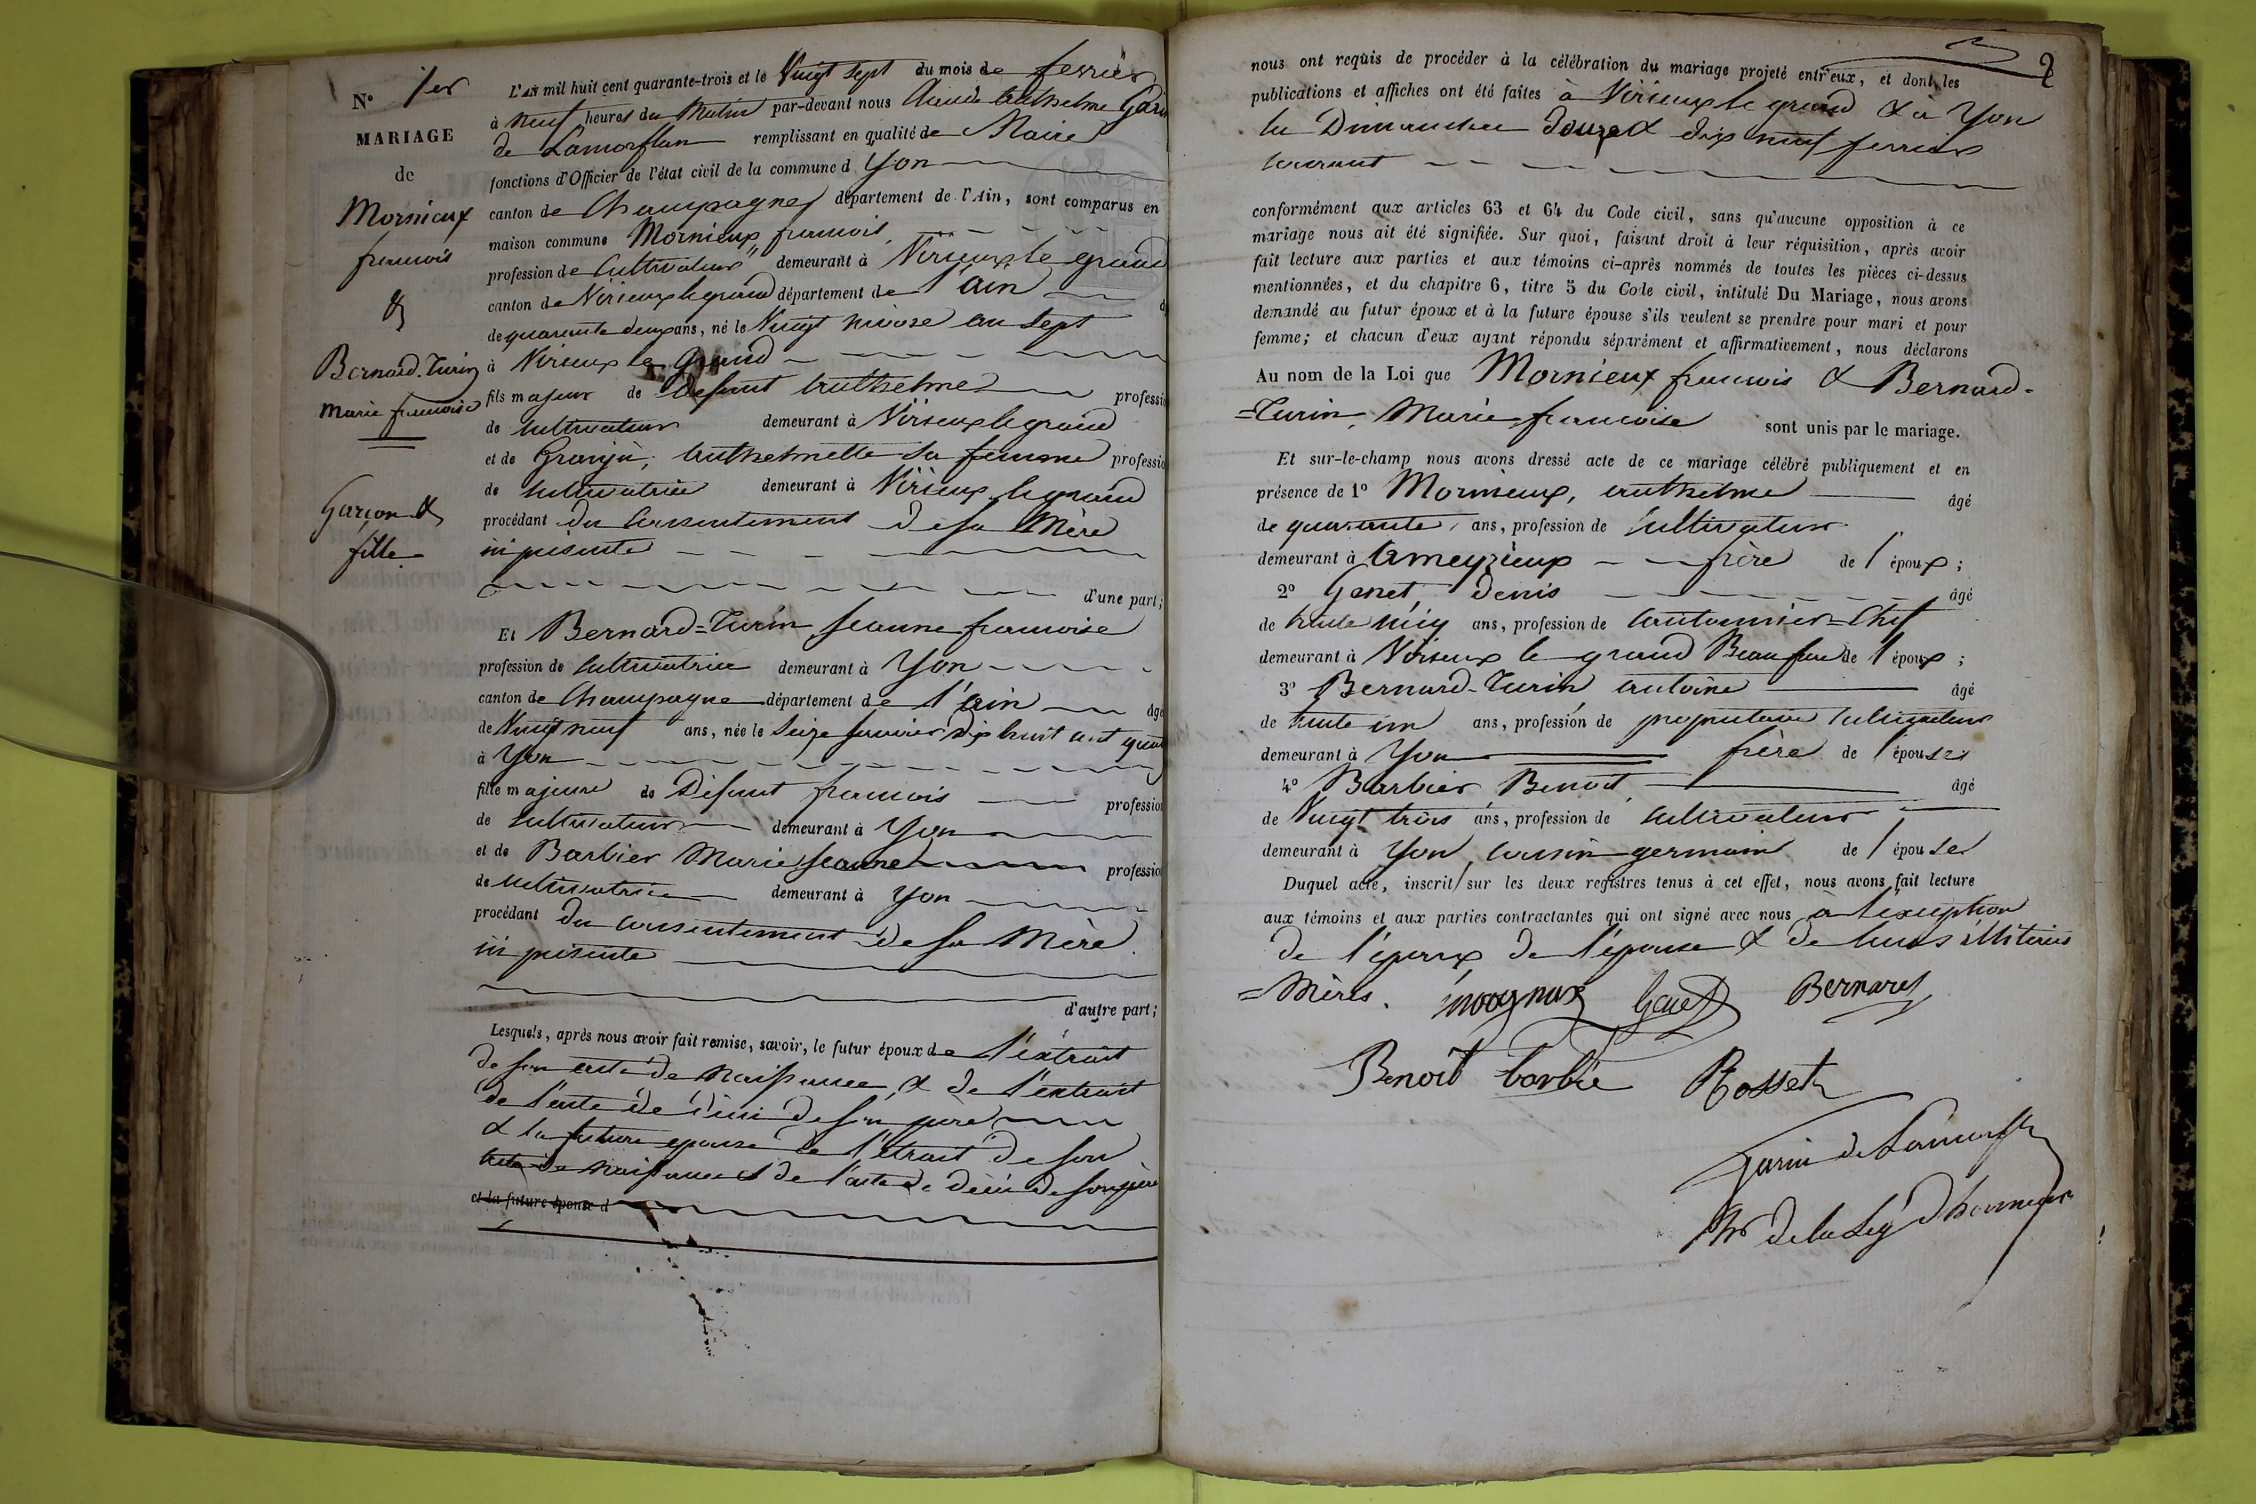 N° 1er
MARIAGE
de
Mornieux
francois
&
Bernard-Turin
Marie francoise
Garcon &
fille
L'An mil huit cent quarante-trois et le Vingt sept du mois de fevrier
à neuf heures du Matin par-devant nous Aimé Anthelme Garin
de Lamorflan remplissant en qualité de Maire
fonctions d'Officier de l'état civil de la commune d Yon
canton de Champagne département de l'Ain, sont comparus en
maison commune Mornieux, francois,
profession de Cultivateur demeurant à Virieux le grand
canton de Virieux le grand département de l'ain
de quarante deux ans, né le Vingt nivose an sept
à Virieux le Grand
fils majeur de Defunt Anthelme profession
de Cultivateur demeurant à Virieux le grand
et de Granju, Anthelmette sa femme profession
de Cultivatrice demeurant à Virieux le grand
procédant du consentement de sa Mère
ici présente
d'une part;
Et Bernard=Turin Jeanne francoise
profession de Cultivatrice demeurant à Yon
canton de Champagne département de l'ain âgé
de Vingt neuf ans, née le Seize janvier dix huit cent quat
à Yon
fille majeure de Défunt francois profession
de Cultivateur demeurant à Yon
et de Barbier Marie Jeanne profession
de Cultivatrice demeurant à Yon
procédant du consentement de sa Mère
ici présente
d'autre part;
Lesquels, après nous avoir fait remise, savoir, le futur époux de l'éxtrait
de son acte de Naissance, & de l'extrait
de l'acte de décès de son père
& la future epouse de l'étrait de son
acte de naissance & de l'acte de décès de son père
et la future épouse d
2
nous ont requis de procéder à la célébration du mariage projeté entr'eux, et dont les
publications et affiches ont été faites à Virieux le grand & à Yon
les Dimanches douze & dix neuf fevrier
courant
conformément aux articles 63 et 64 du Code civil, sans qu'aucune opposition à ce
mariage nous ait été signifiée. Sur quoi, faisant droit à leur réquisition, après avoir
fait lecture aux parties et aux témoins ci-après nommés de toutes les pièces ci-dessus
mentionnées, et du chapitre 6, titre 5 du Code civil, intitulé Du Mariage, nous avons
demandé au futur époux et à la future épouse s'ils veulent se prendre pour mari et pour
femme; et chacun d'eux ayant répondu séparément et affirmativement, nous déclarons
Au nom de la Loi que Mornieux francois & Bernard-
=Turin, Marie, francoise sont unis par le mariage.
Et sur-le-champ nous avons dressé acte de ce mariage célébré publiquement et en
présence de 1° Mornieux, Anthelme âgé
de quarante ans, profession de Cultivateur
demeurant à Ameyzieux frère de l'époux;
2° Genet, Denis âgé
de trente cinq ans, profession de Cantonnier=Chef
demeurant à Virieux le grand Beau frere de l'époux;
3° Bernard-Turin Antoine âgé
de trente un ans, profession de propriétaire Cultivateur
demeurant à Yon frère de l'épouse
4° Barbier Benoit âgé
de Vingt trois ans, profession de Cultivateur
demeurant à Yon, Cousin germain de l'épouse
Duquel acte, inscrit sur les deux registres tenus à cet effet, nous avons fait lecture
aux témoins et aux parties contractantes qui ont signé avec nous à l'exception
de l'époux de l'épouse & de leurs
=Mères.
Bernard
Benoit barbie Rosset
Garin de Lamorflan